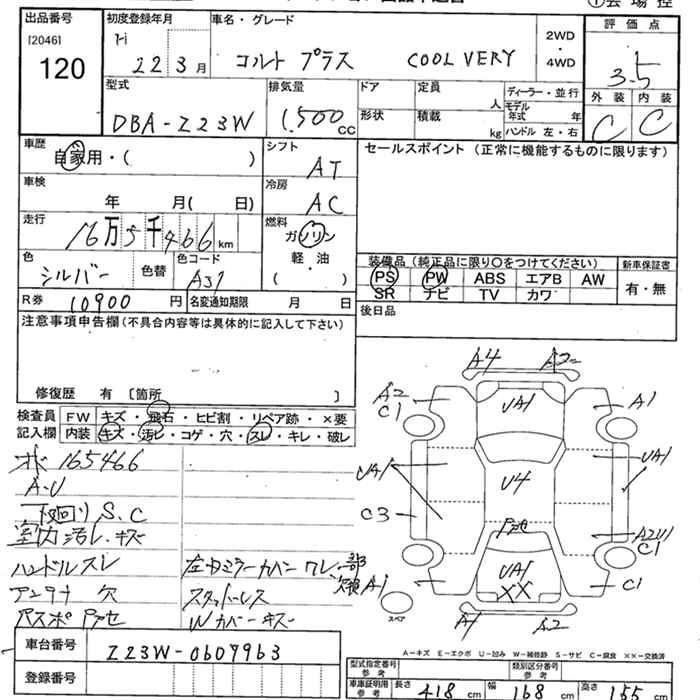 出品番号
[2046]
120
初度登録年月
22 3 月
車名・グレード
コルト プラス COOL VERY
2WD
・
4WD
評価点
3.5
外装 内装
C C
型式
DBA-Z23W
排気量
1,500 cc
ドア
定員
人
ディーラー・並行
形状
積載
kg
モデル年式 年
ハンドル 左・右
車歴
自家用・( )
シフト
AT
セールスポイント (正常に機能するものに限ります)
車検
年 月( 日)
冷房
AC
走行
16万5千466 km
燃料
ガソリン
軽・油
( )
色
シルバー
色替
色コード
A31
装備品 (純正品に限り○をつけてください)
PS PW ABS エアB AW
SR ナビ TV カワ
新車保証書
有・無
R券 10900 円
名変通知期限 月 日
後日品
注意事項申告欄(不具合内容等は具体的に記入して下さい)
修復歴 有 [箇所 ]
検査員 FW キズ・飛石・ヒビ割・リペア跡・×要
記入欄 内装 キズ・汚レ・コゲ・穴・スレ・キレ・破レ
165466
A-U
下廻り S、C
室内汚レ、キズ
ハンドルスレ
アンテナ 穴
左ドアミラーカバー ワレ、一部欠損
スタッドレス
Wカバーキズ
A4 A2
A2
C1
UA1
A1
UA1
UA1
U4
C3
A2U1
C1
UA1
XX
A1
C1
A1 A2
スペア
A-キズ E-エクボ U-凹み W-補修跡 S-サビ C-腐食 XX-交換済
車台番号 Z23W-0607963
登録番号
型式指定番号
参考
類別区分番号
参考
車庫証明用
参考
長さ 418 cm 幅 168 cm 高さ 155 cm